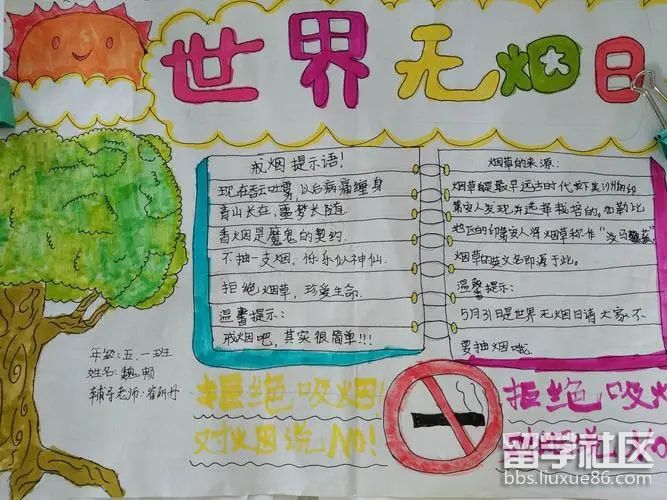 世界无烟日
戒烟提示语!
现在吞云吐雾,以后病痛缠身
青山长在,噩梦长随
香烟是魔鬼的契约.
不抽一支烟,快乐似神仙.
拒绝烟草,珍爱生命.
温馨提示:
戒烟吧,其实很简单!!!
烟草的来源:
烟草是最早远古时代
第安人发现并选择栽培的。加勒比
地区的印第安人将烟草称作"
烟草的英文名即源于此。
温馨提示:
5月31日是世界无烟日请大家不
要抽烟哦.
年级:五.一班
姓名:魏畅
辅导老师:
拒绝吸烟!
对烟说No!
拒绝吸烟
留学社区
bbs.liuxue86.com